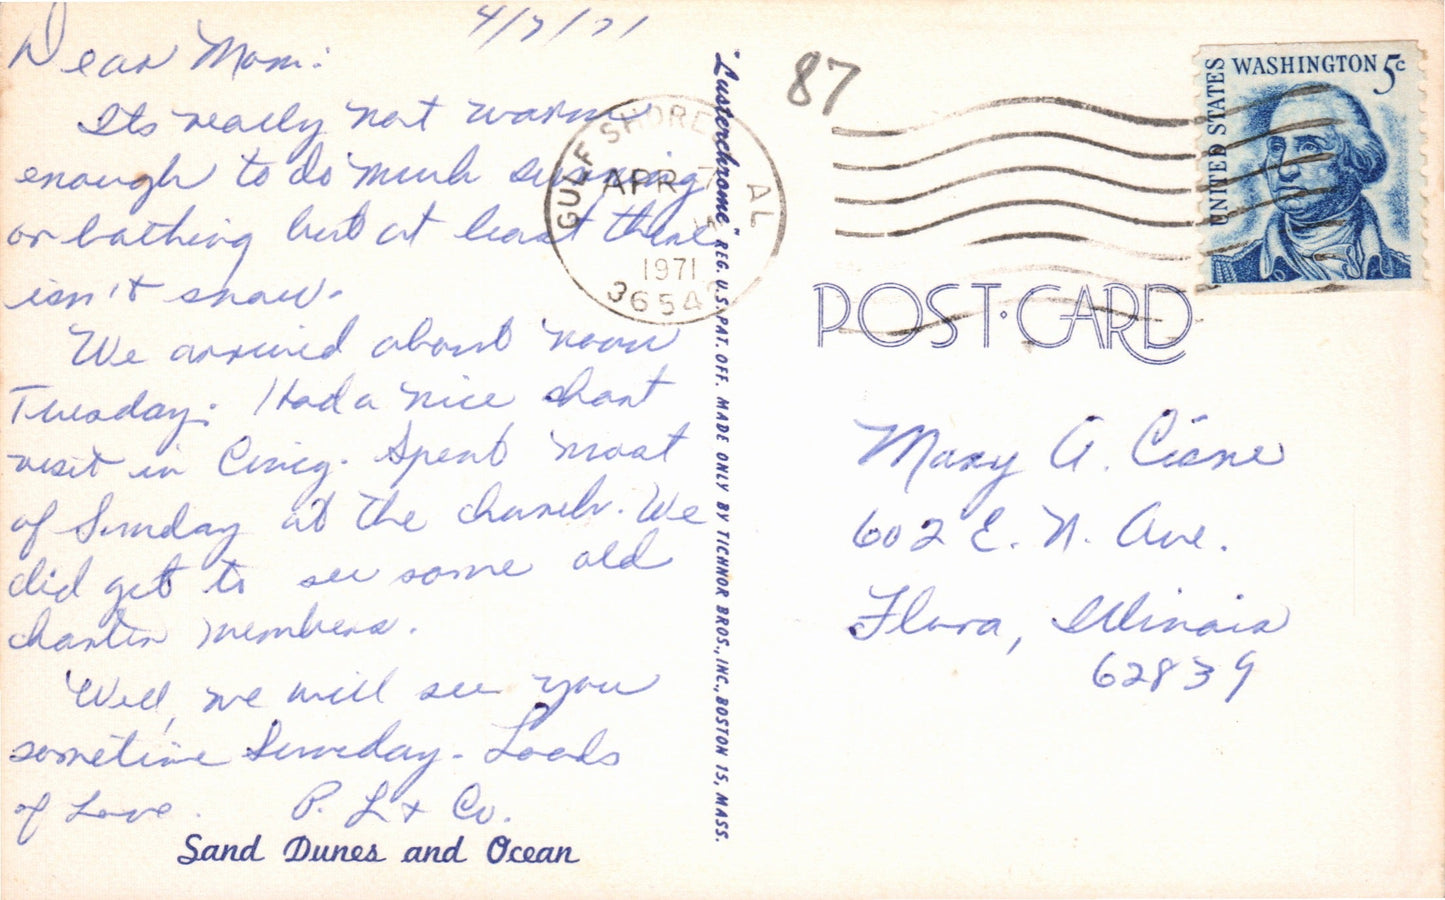 4/7/71
Dear Mom:
Its really not warm
enough to do much swimming
or bathing but at least there
isn't snow.
We arrived about noon
Tuesday. Had a nice short
visit in Cincy. Spent most
of Sunday at the church. We
did get to see some old
charter members.
Well, we will see you
sometime Sunday. Loads
of Love. P. L & Co.
Sand Dunes and Ocean
"Lusterchrome" REG. U.S. PAT. OFF. MADE ONLY BY TICHNOR BROS., INC., BOSTON 15, MASS.
87
GULF SHORES AL
APR 7
1971
36542
UNITED STATES
WASHINGTON 5c
POST·CARD
Mary A. Cisne
602 E. N. Ave.
Flora, Illinois
62839